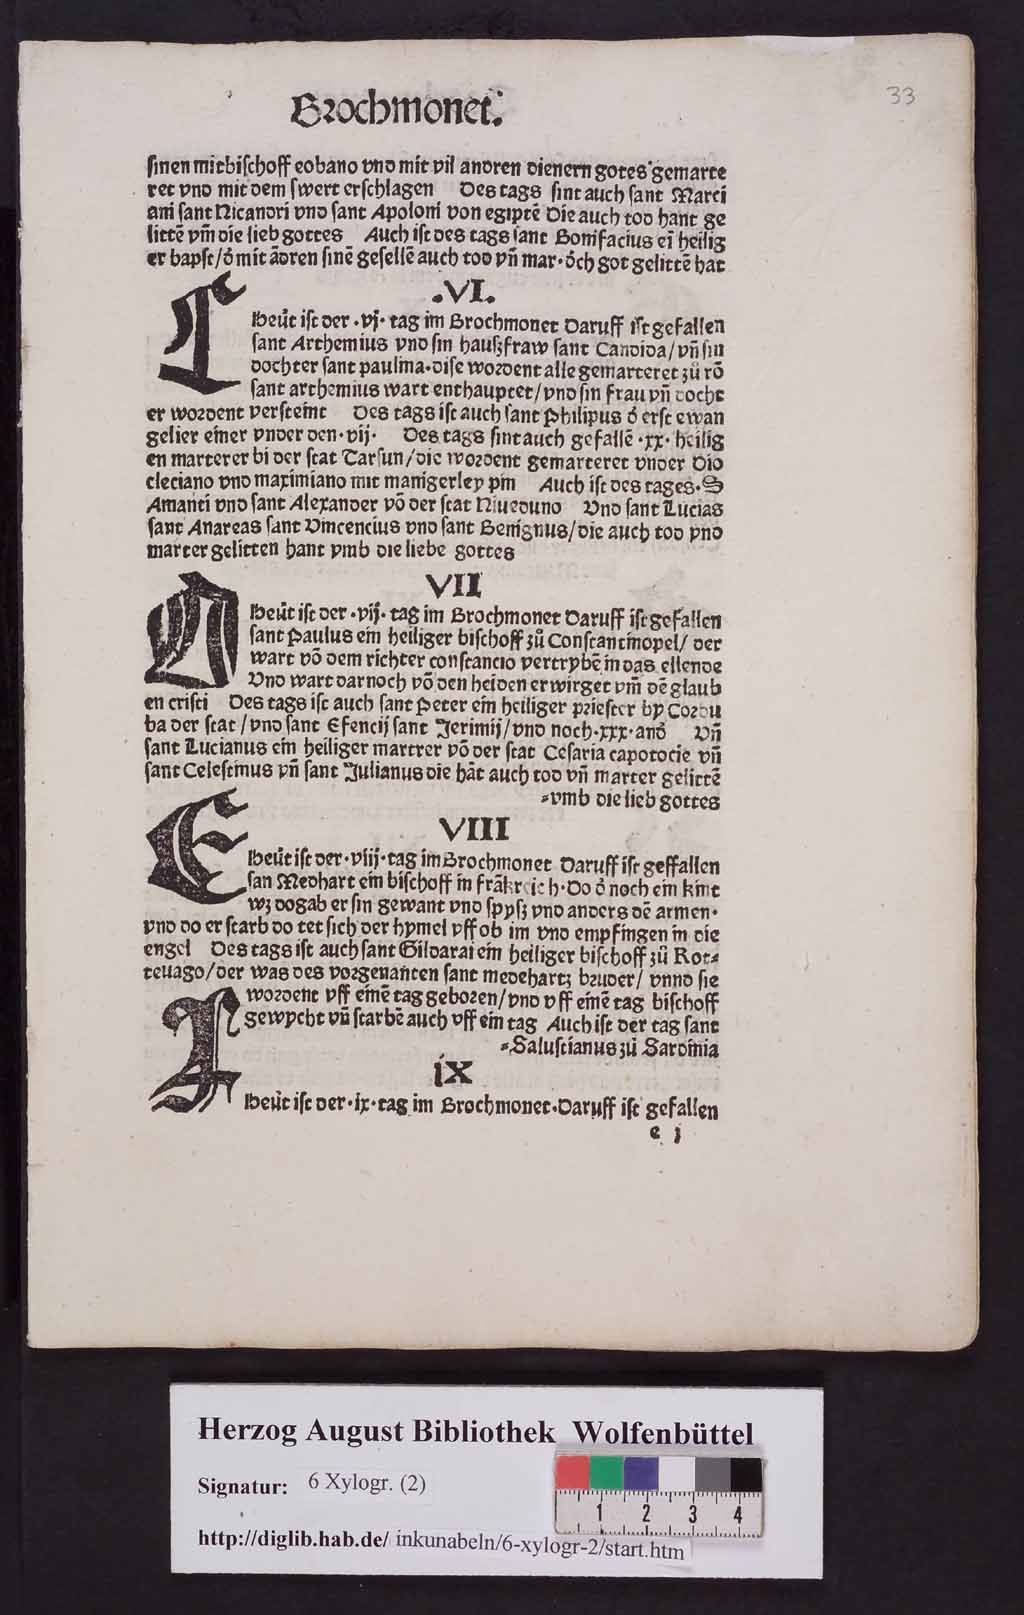 33
Brochmonet.
sinen mitbischoff eobano vnd mit vil andren dienern gotes gemarte
ret vnd mit dem swert erschlagen Des tags sint auch sant Marci
ani sant Nicandri vnd sant Apoloni von egiptē Die auch tod hant ge
littē vm̄ die lieb gottes Auch ist des tags sant Bonifacius ei̅ heilig
er bapst/ð mit ādren sinē gesellē auch tod vn̄ mar·ðch got gelittē hat
.VI.
Heu̇t ist der ·vj· tag im Brochmonet Daruff ist gefallen
sant Arthemius vnd sin hausz fraw sant Candida/vn̄ sin
dochter sant paulina·dise wordent alle gemarteret zů rō
sant arthemius wart enthauptet/vnd sin frau vn̄ tocht
er wordent versteint Des tags ist auch sant Philipus ð erst ewan
gelier einer vnder den·vij· Des tags sint auch gefallē ·xx· heilig
en marterer bi der stat Tarsun/die wordent gemarteret vnder Dio
cleciano vnd maximiano mit manigerley pin Auch ist des tages·S
Amanti vnd sant Alexander vō der stat Niueduno Vnd sant Lucias
sant Anareas sant Vincencius vnd sant Benignus/die auch tod vnd
marter gelitten hant vmb die liebe gottes
VII
Heu̇t ist der ·vij· tag im Brochmonet Daruff ist gefallen
sant Paulus ein heiliger bischoff zů Constantinopel/ der
wart vō dem richter constancio vertrybē in das ellende
Vnd wart darnoch vō den heiden erwirget vm̄ dē glaub
en cristi Des tags ist auch sant Peter ein heiliger priester by Cordu
ba der stat/vnd sant Efencij sant Jerimij/vnd noch·xxx·and̄ Vn̄
sant Lucianus ein heiliger martrer vō der stat Cesaria capotocie vn̄
sant Celestinus vn̄ sant Julianus die hāt auch tod vn̄ marter gelittē
⸗vmb die lieb gottes
VIII
E Heu̇t ist der·viij·tag im Brochmonet Daruff ist geffallen
san Medhart ein bischoff in frākreich·Do ð noch ein kint
wz do gab er sin gewant vnd spysz vnd anders dē armen·
vnd do er starb do tet sich der hymel vff ob im vnd empfingen in die
engel Des tags ist auch sant Gildarai ein heiliger bischoff zů Rot⸗
teuago/der was des vorgenanten sant medehartz bruder/ vnnd sie
wordent vff einē tag geboren/vnd vff einē tag bischoff
gewycht vn̄ starbē auch vff ein tag Auch ist der tag sant
⸗Salustianus zů Sardinia
iX
Heu̇t ist der·ix·tag im Brochmonet·Daruff ist gefallen
e j
Herzog August Bibliothek Wolfenbüttel
Signatur: 6 Xylogr. (2)
1 2 3 4
http://diglib.hab.de/ inkunabeln/6-xylogr-2/start.htm